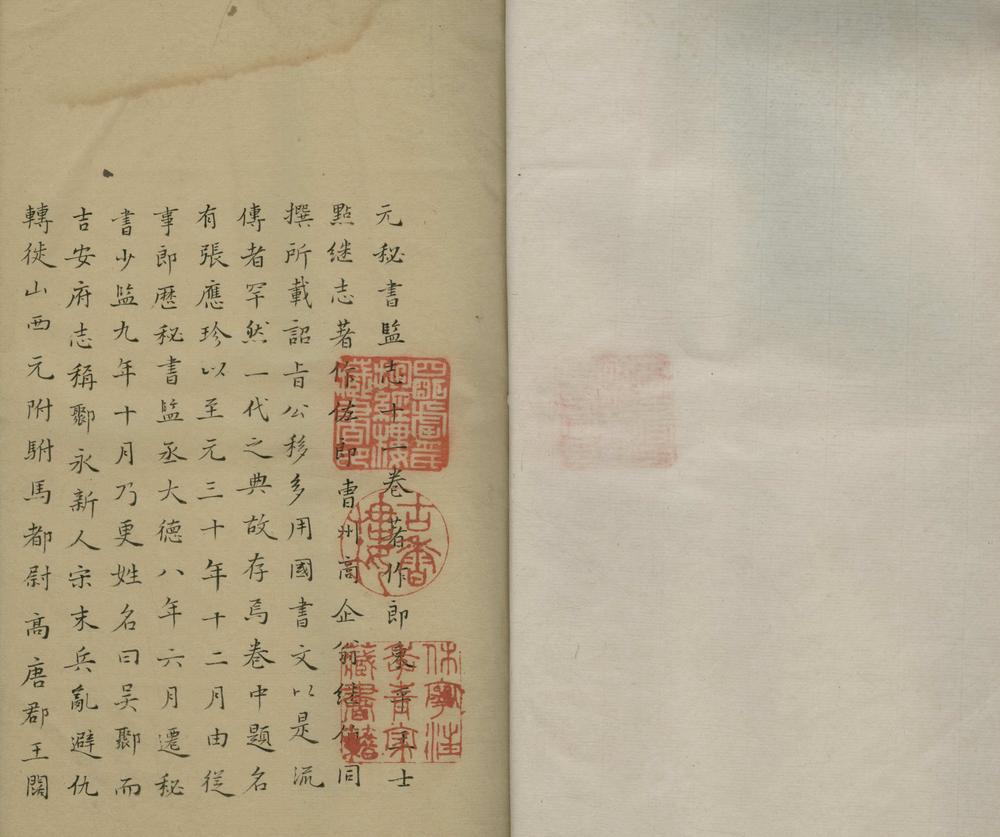 元秘書監志十一卷著作郎東平王士
點继志著作佐郎曹州高企翁继伯同
撰所載詔旨公移多用國書文以是流
傳者罕然一代之典故存焉卷中題名
有張應珍以至元三十年十二月由從
事郎歴秘書監丞大德八年六月遷秘
書少監九年十月乃更姓名曰吴鄹而
吉安府志稱鄹永新人宋末兵亂避仇
轉徙山西元附駙馬都尉高唐郡王闊
四明盧氏
抱經樓
藏書印
古香
樓
休寧汪
季青家
藏書籍